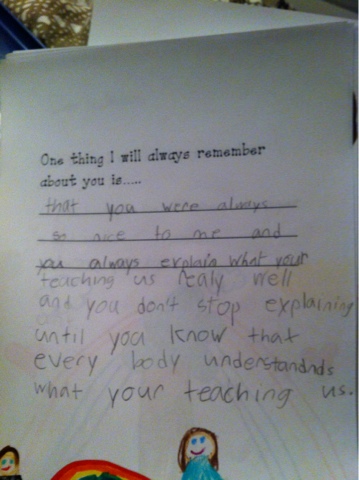 One thing I will always remember
about you is.....
that you were always
so nice to me and
you always explain what your
teaching us realy well
and you don't stop explaining
until you know that
every body understandnds
what your teaching us.